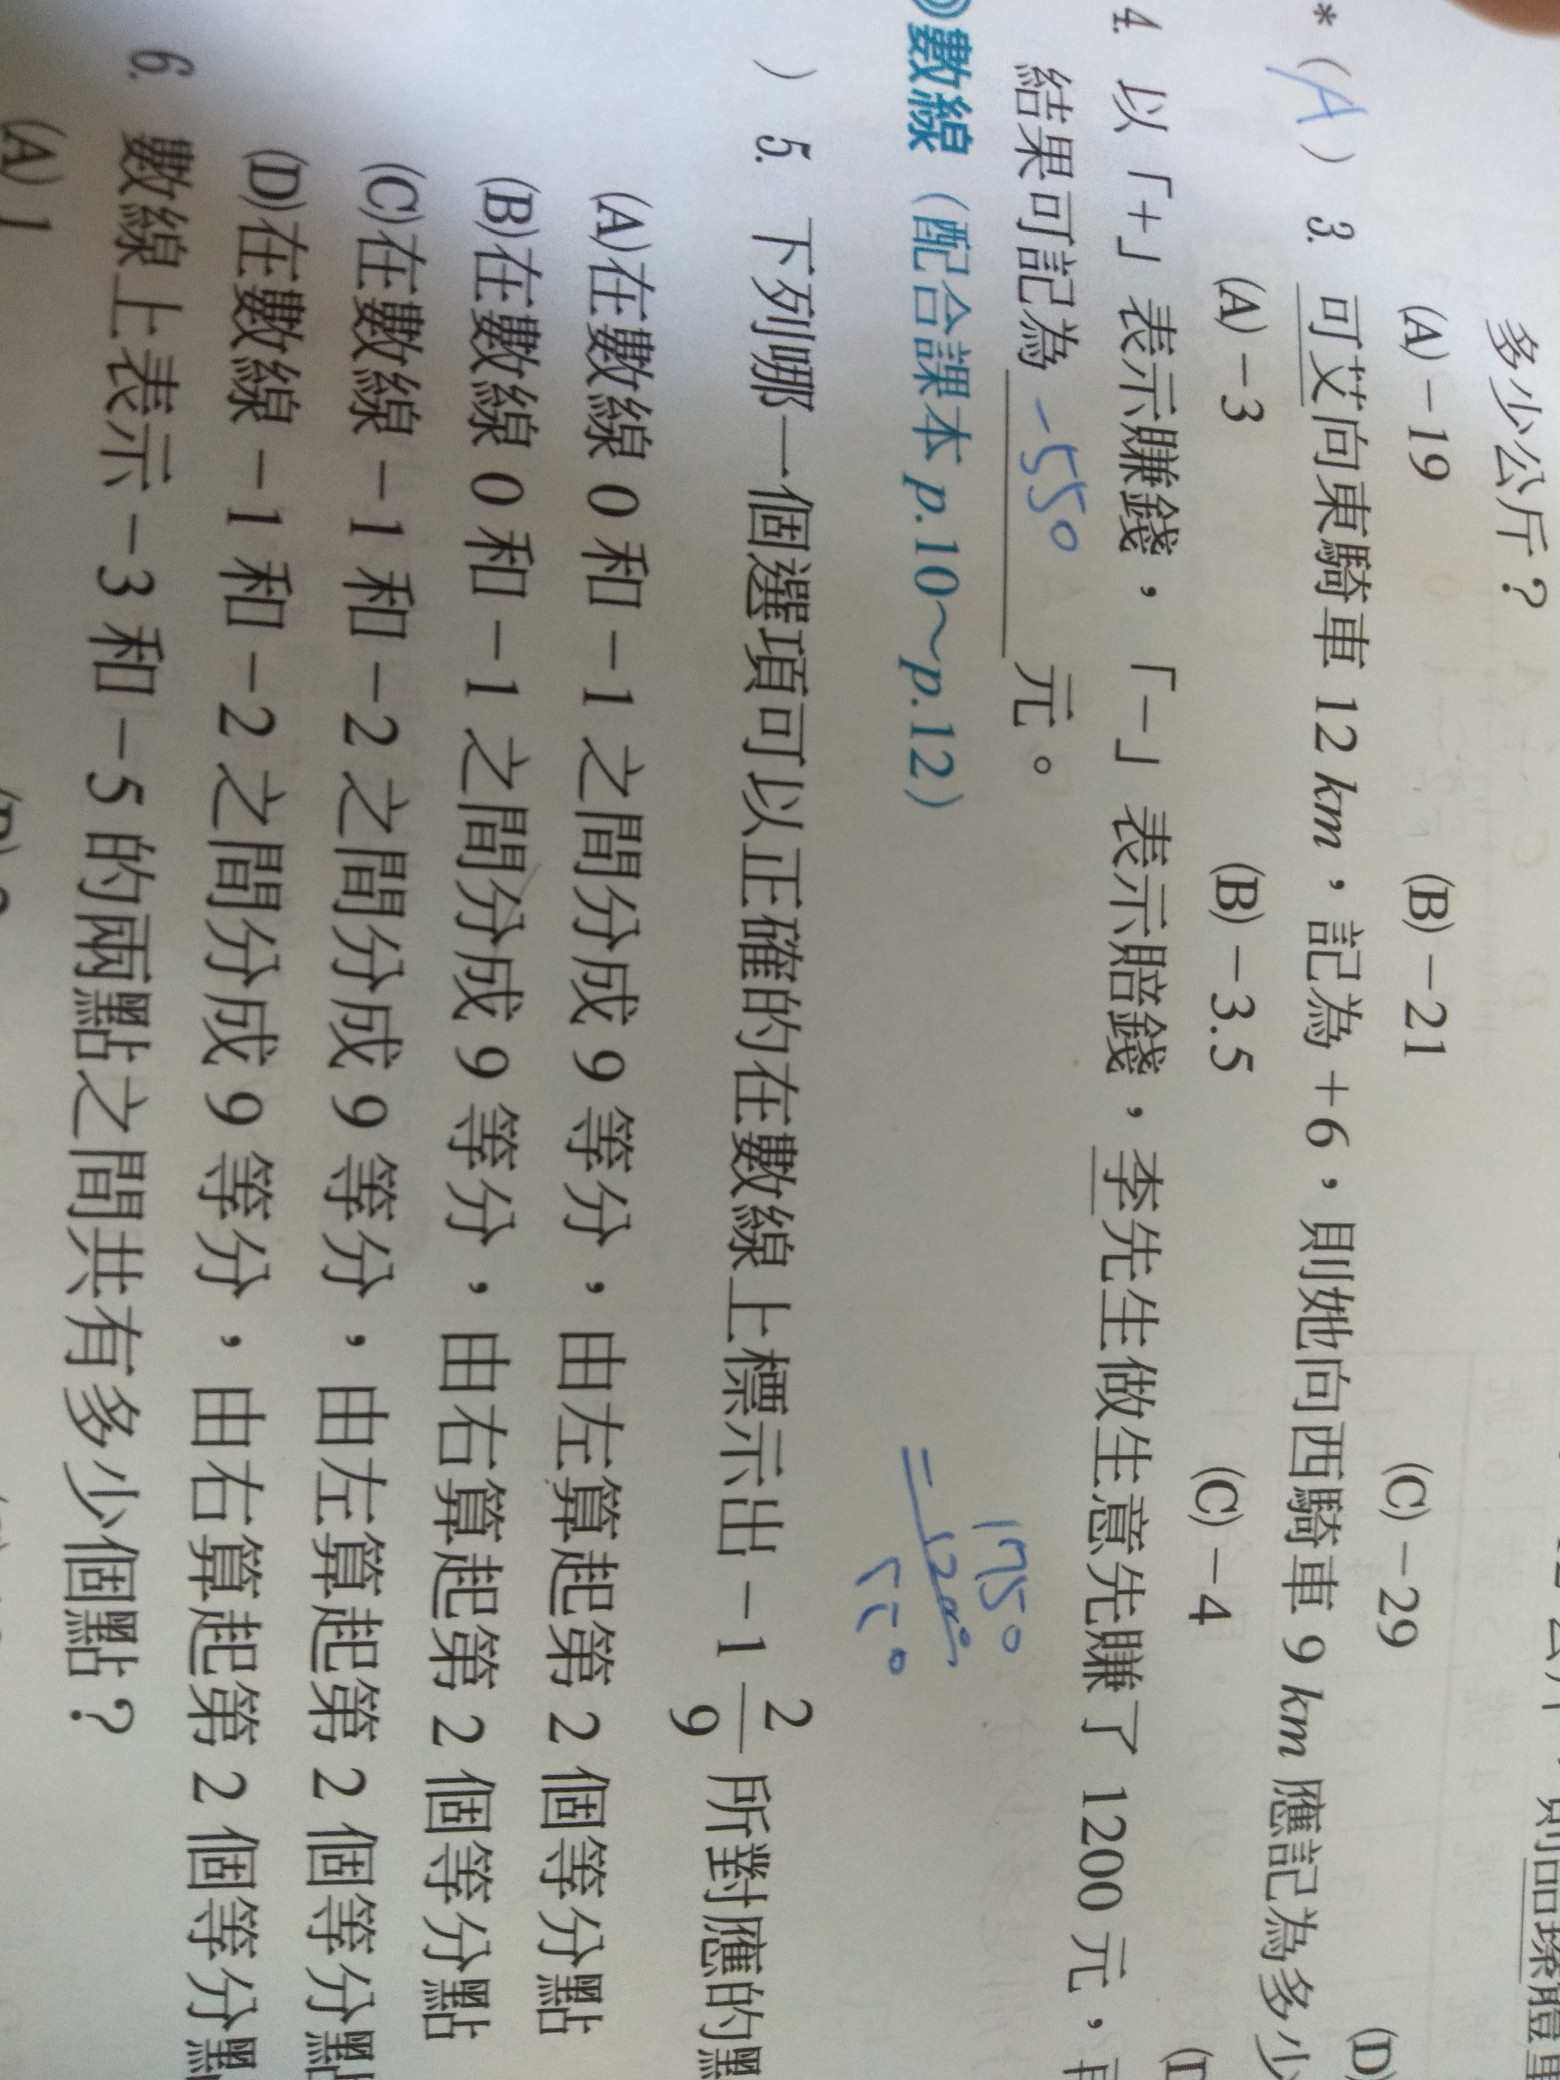 多少公斤？
(A) －19 (B) －21 (C) －29 (D)
*（A） 3. 可艾向東騎車 12 km，記為 +6，則她向西騎車 9 km 應記為多少
(A) －3 (B) －3.5 (C) －4
4. 以「+」表示賺錢，「－」表示賠錢，李先生做生意先賺了 1200 元，
結果可記為 -550 元。
1750
數線（配合課本 p.10～p.12）
550
） 5. 下列哪一個選項可以正確的在數線上標示出 －1 2/9 所對應的
(A)在數線 0 和 －1 之間分成 9 等分，由左算起第 2 個等分點
(B)在數線 0 和 －1 之間分成 9 等分，由右算起第 2 個等分點
(C)在數線 －1 和 －2 之間分成 9 等分，由左算起第 2 個等分點
(D)在數線 －1 和 －2 之間分成 9 等分，由右算起第 2 個等分
6. 數線上表示 －3 和 －5 的兩點之間共有多少個點？
(A) 1